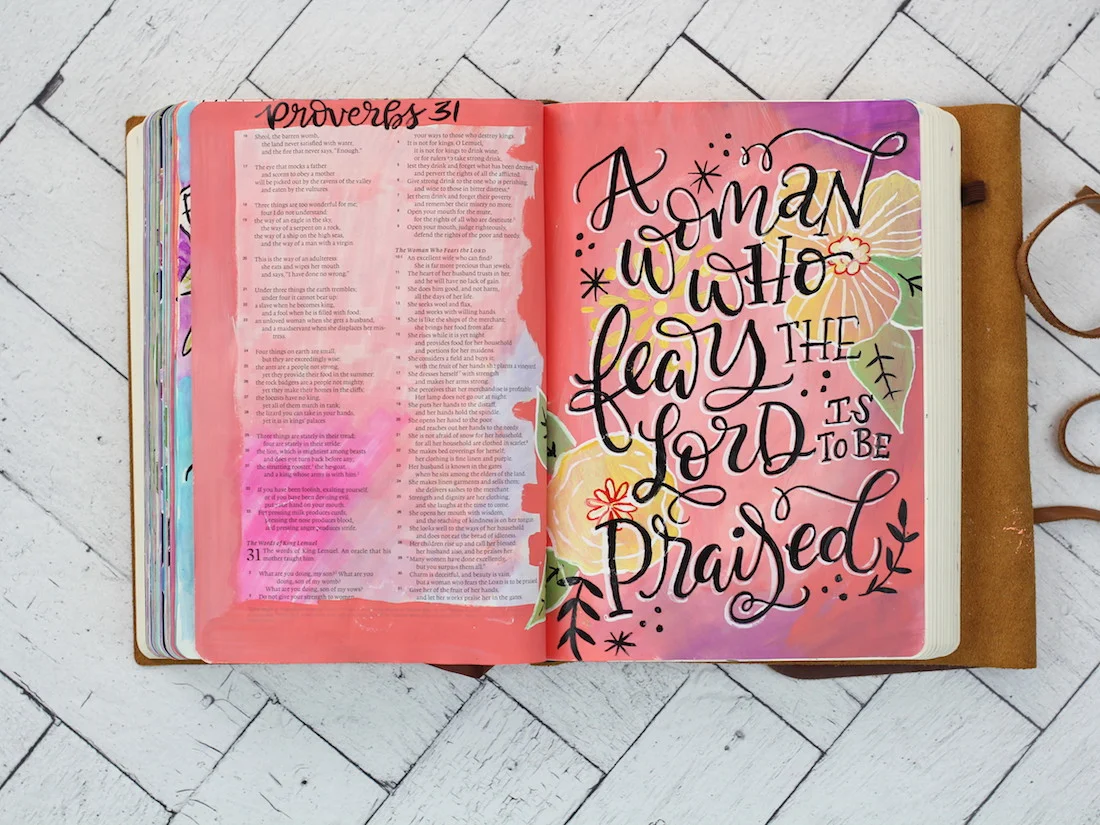 Proverbs 31
16 Sheol, the barren womb,
the land never satisfied with water,
and the fire that never says, "Enough."
17 The eye that mocks a father
and scorns to obey a mother
will be picked out by the ravens of the valley
and eaten by the vultures.
18 Three things are too wonderful for me;
four I do not understand:
19 the way of an eagle in the sky,
the way of a serpent on a rock,
the way of a ship on the high seas,
and the way of a man with a virgin.
20 This is the way of an adulteress:
she eats and wipes her mouth
and says, "I have done no wrong."
21 Under three things the earth trembles;
under four it cannot bear up:
22 a slave when he becomes king,
and a fool when he is filled with food;
23 an unloved woman when she gets a husband,
and a maidservant when she displaces her mis-
tress.
24 Four things on earth are small,
but they are exceedingly wise:
25 the ants are a people not strong,
yet they provide their food in the summer;
26 the rock badgers are a people not mighty,
yet they make their homes in the cliffs;
27 the locusts have no king,
yet all of them march in rank;
28 the lizard you can take in your hands,
yet it is in kings' palaces.
29 Three things are stately in their tread;
four are stately in their stride:
30 the lion, which is mightiest among beasts
and does not turn back before any;
31 the strutting rooster, the he-goat,
and a king whose army is with him.
32 If you have been foolish, exalting yourself,
or if you have been devising evil,
put your hand on your mouth.
33 For pressing milk produces curds,
pressing the nose produces blood,
and pressing anger produces strife.
The Words of King Lemuel
31 The words of King Lemuel. An oracle that his
mother taught him:
2 What are you doing, my son? What are you
doing, son of my womb?
What are you doing, son of my vows?
3 Do not give your strength to women,
your ways to those who destroy kings.
4 It is not for kings, O Lemuel,
it is not for kings to drink wine,
or for rulers to take strong drink,
5 lest they drink and forget what has been decreed
and pervert the rights of all the afflicted.
6 Give strong drink to the one who is perishing,
and wine to those in bitter distress;
7 let them drink and forget their poverty
and remember their misery no more.
8 Open your mouth for the mute,
for the rights of all who are destitute.
9 Open your mouth, judge righteously,
defend the rights of the poor and needy.
The Woman Who Fears the LORD
10 An excellent wife who can find?
She is far more precious than jewels.
11 The heart of her husband trusts in her,
and he will have no lack of gain.
12 She does him good, and not harm,
all the days of her life.
13 She seeks wool and flax,
and works with willing hands.
14 She is like the ships of the merchant;
she brings her food from afar.
15 She rises while it is yet night
and provides food for her household
and portions for her maidens.
16 She considers a field and buys it;
with the fruit of her hands she plants a vineyard.
17 She dresses herself with strength
and makes her arms strong.
18 She perceives that her merchandise is profitable.
Her lamp does not go out at night.
19 She puts her hands to the distaff,
and her hands hold the spindle.
20 She opens her hand to the poor
and reaches out her hands to the needy.
21 She is not afraid of snow for her household,
for all her household are clothed in scarlet.
22 She makes bed coverings for herself;
her clothing is fine linen and purple.
23 Her husband is known in the gates
when he sits among the elders of the land.
24 She makes linen garments and sells them;
she delivers sashes to the merchant.
25 Strength and dignity are her clothing,
and she laughs at the time to come.
26 She opens her mouth with wisdom,
and the teaching of kindness is on her tongue.
27 She looks well to the ways of her household
and does not eat the bread of idleness.
28 Her children rise up and call her blessed;
her husband also, and he praises her:
29 "Many women have done excellently,
but you surpass them all."
30 Charm is deceitful, and beauty is vain,
but a woman who fears the LORD is to be praised.
31 Give her of the fruit of her hands,
and let her works praise her in the gates.
A
Woman
who
fears THE
Lord IS
TO BE
Praised